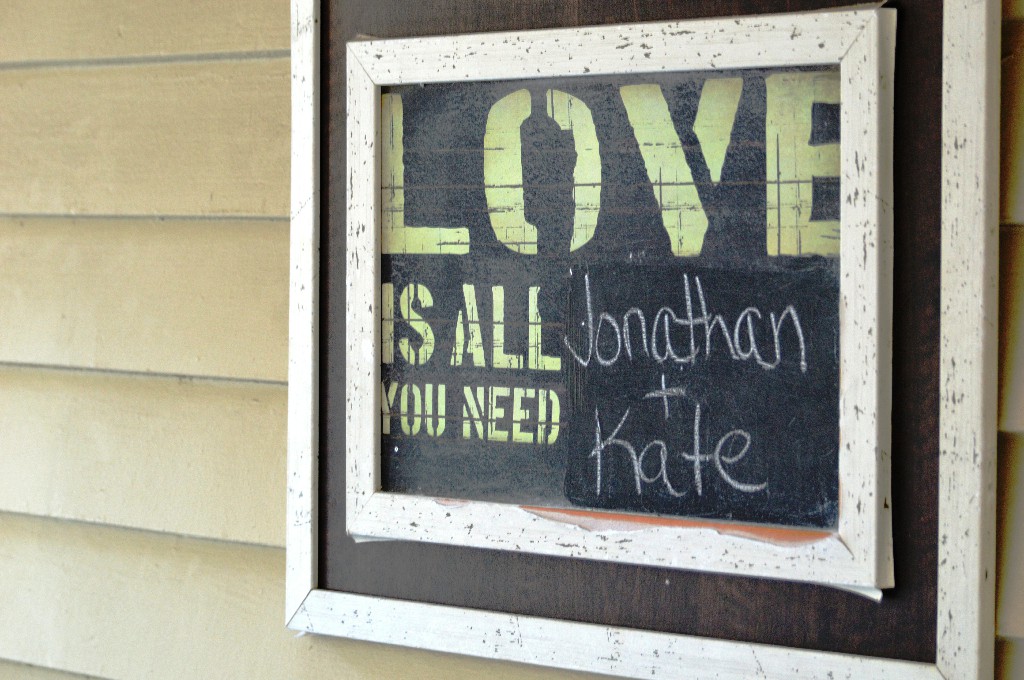 LOVE
IS ALL
YOU NEED
Jonathan
+
Kate